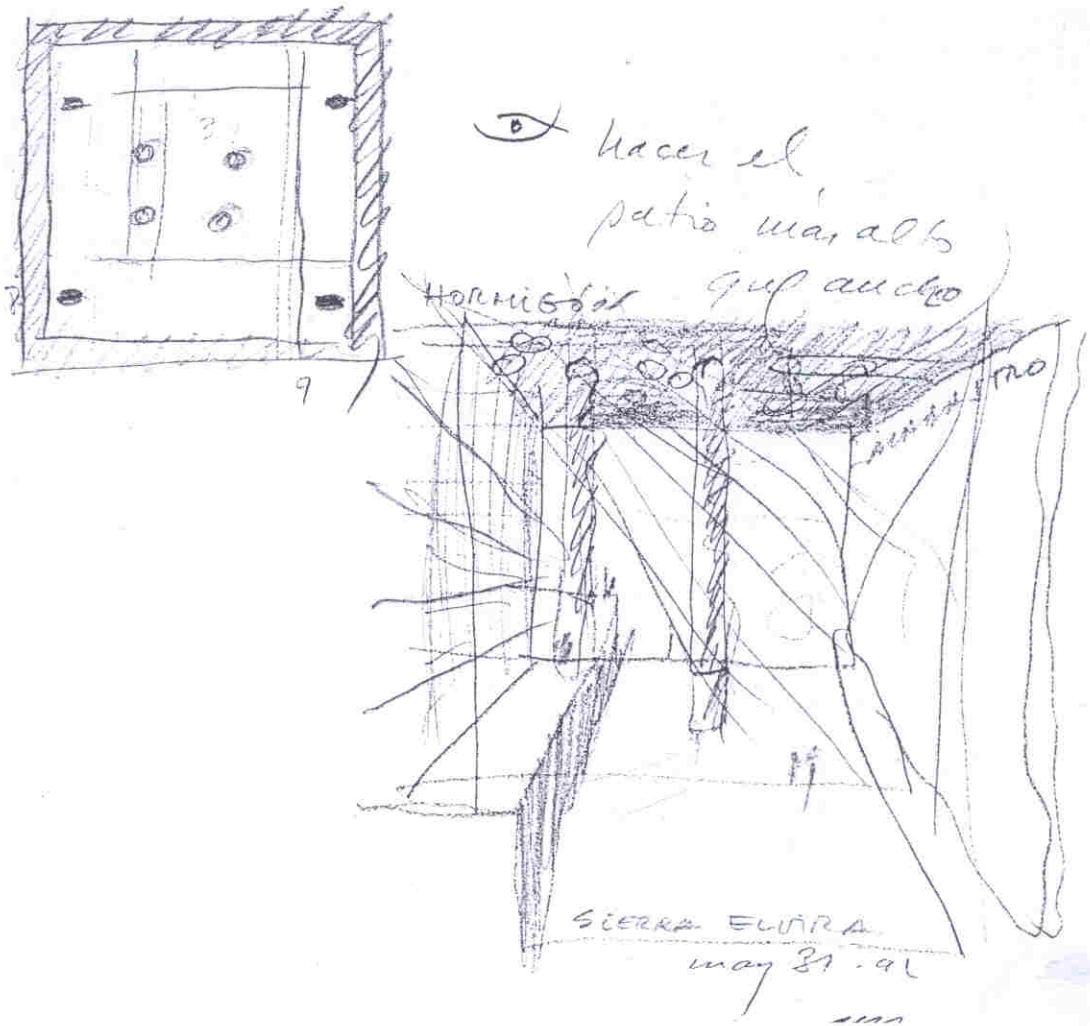 3
hacer el
patio más alto
que ancho
HORMIGÓN
9
SIERRA ELVIRA
may 31.92